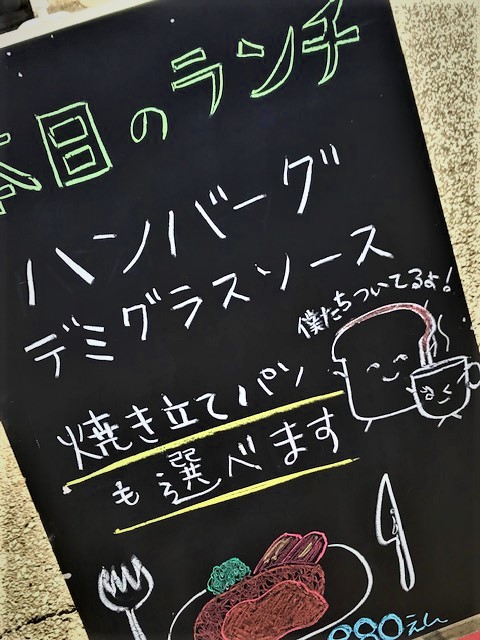 本日のランチ
ハンバーグ
デミグラスソース
僕たちついてるよ!
焼き立てパン
も選べます
890えん